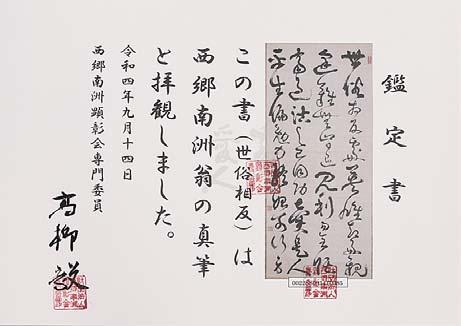 鑑定書
世俗相反處英雄却好親
逢難無肯退見利勿全循
齊過沽之己同功賣是人
平生偏勉力終始可行身
この書(世俗相反)は
西郷南洲翁の真筆
と拝観しました。
令和四年九月十四日
西郷南洲顕彰会専門委員
高柳毅